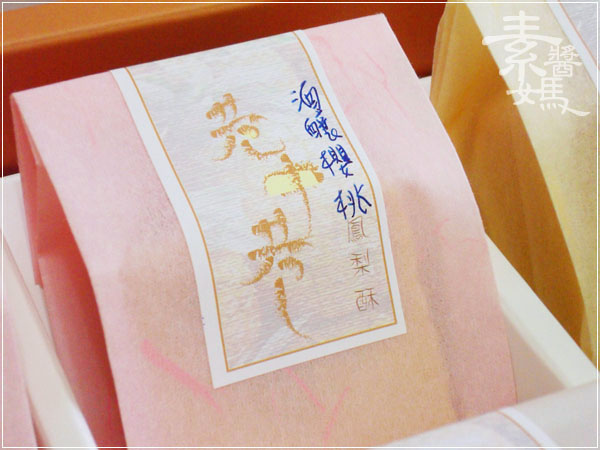 素醬媽
酒釀櫻桃
鳳梨酥